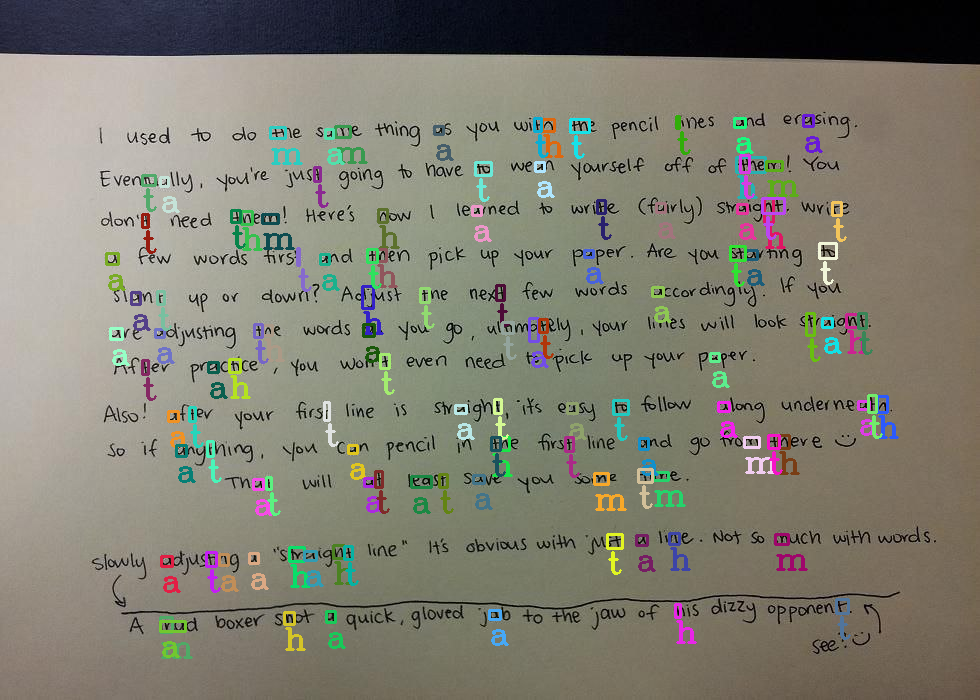 I used to do the same thing as you with the pencil lines and erasing.
Eventually, you're just going to have to wean yourself off of them! You
don't need them! Here's how I learned to write (fairly) straight. write
a few words first and then pick up your paper. Are you starting to
slant up or down? Adjust the next few words accordingly. If you
are adjusting the words as you go, ultimately, your lines will look straight.
After practice, you won't even need to pick up your paper.
Also! after your first line is straight, it's easy to follow along underneath.
So if anything, you can pencil in the first line and go from there
That will at least save you some time.
slowly adjusting a "straight line" It's obvious with just a line. Not so much with words.
A rad boxer shot a quick, gloved jab to the jaw of his dizzy opponent.
see?